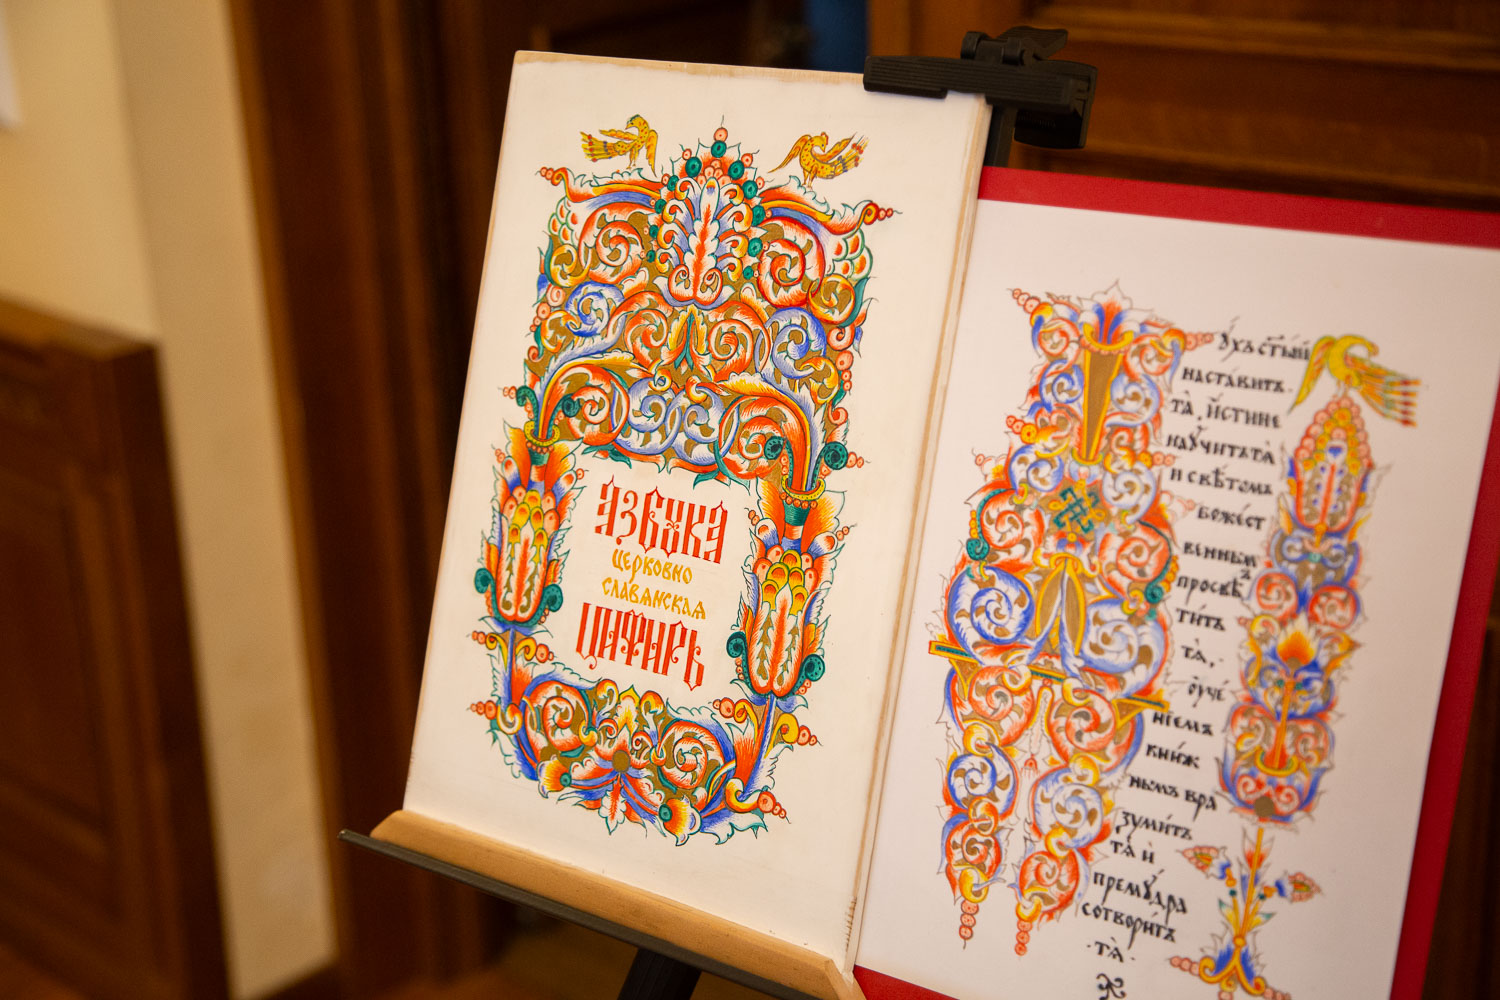 АЗБУКА
ЦЕРКОВНО
СЛАВѦНСКАѦ
ЦИФИРЬ
Ꙋхъ ст҃ый
наста́витъ.
тѧ̀, и҆́стине
наꙋчи́тъ тѧ̀
и свѣ́томъ
боже́ст
веннымъ
просвѣ
ти́тъ
тѧ̀,.
ᲂу҆че́
нїемъ
кни́ж
нымъ вра
зꙋми́тъ
тѧ̀ и҆
премꙋ́дра
сотвори́тъ
·тѧ̀·